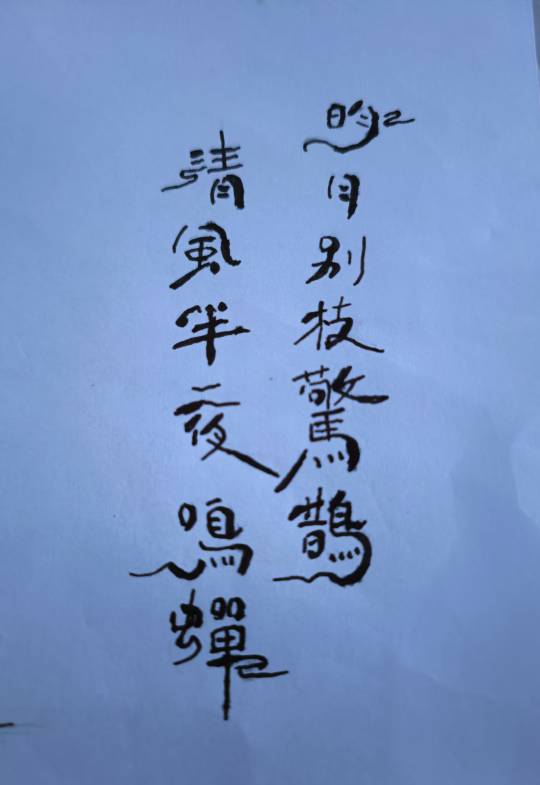 明月别枝驚鵲
清風半夜鳴蟬